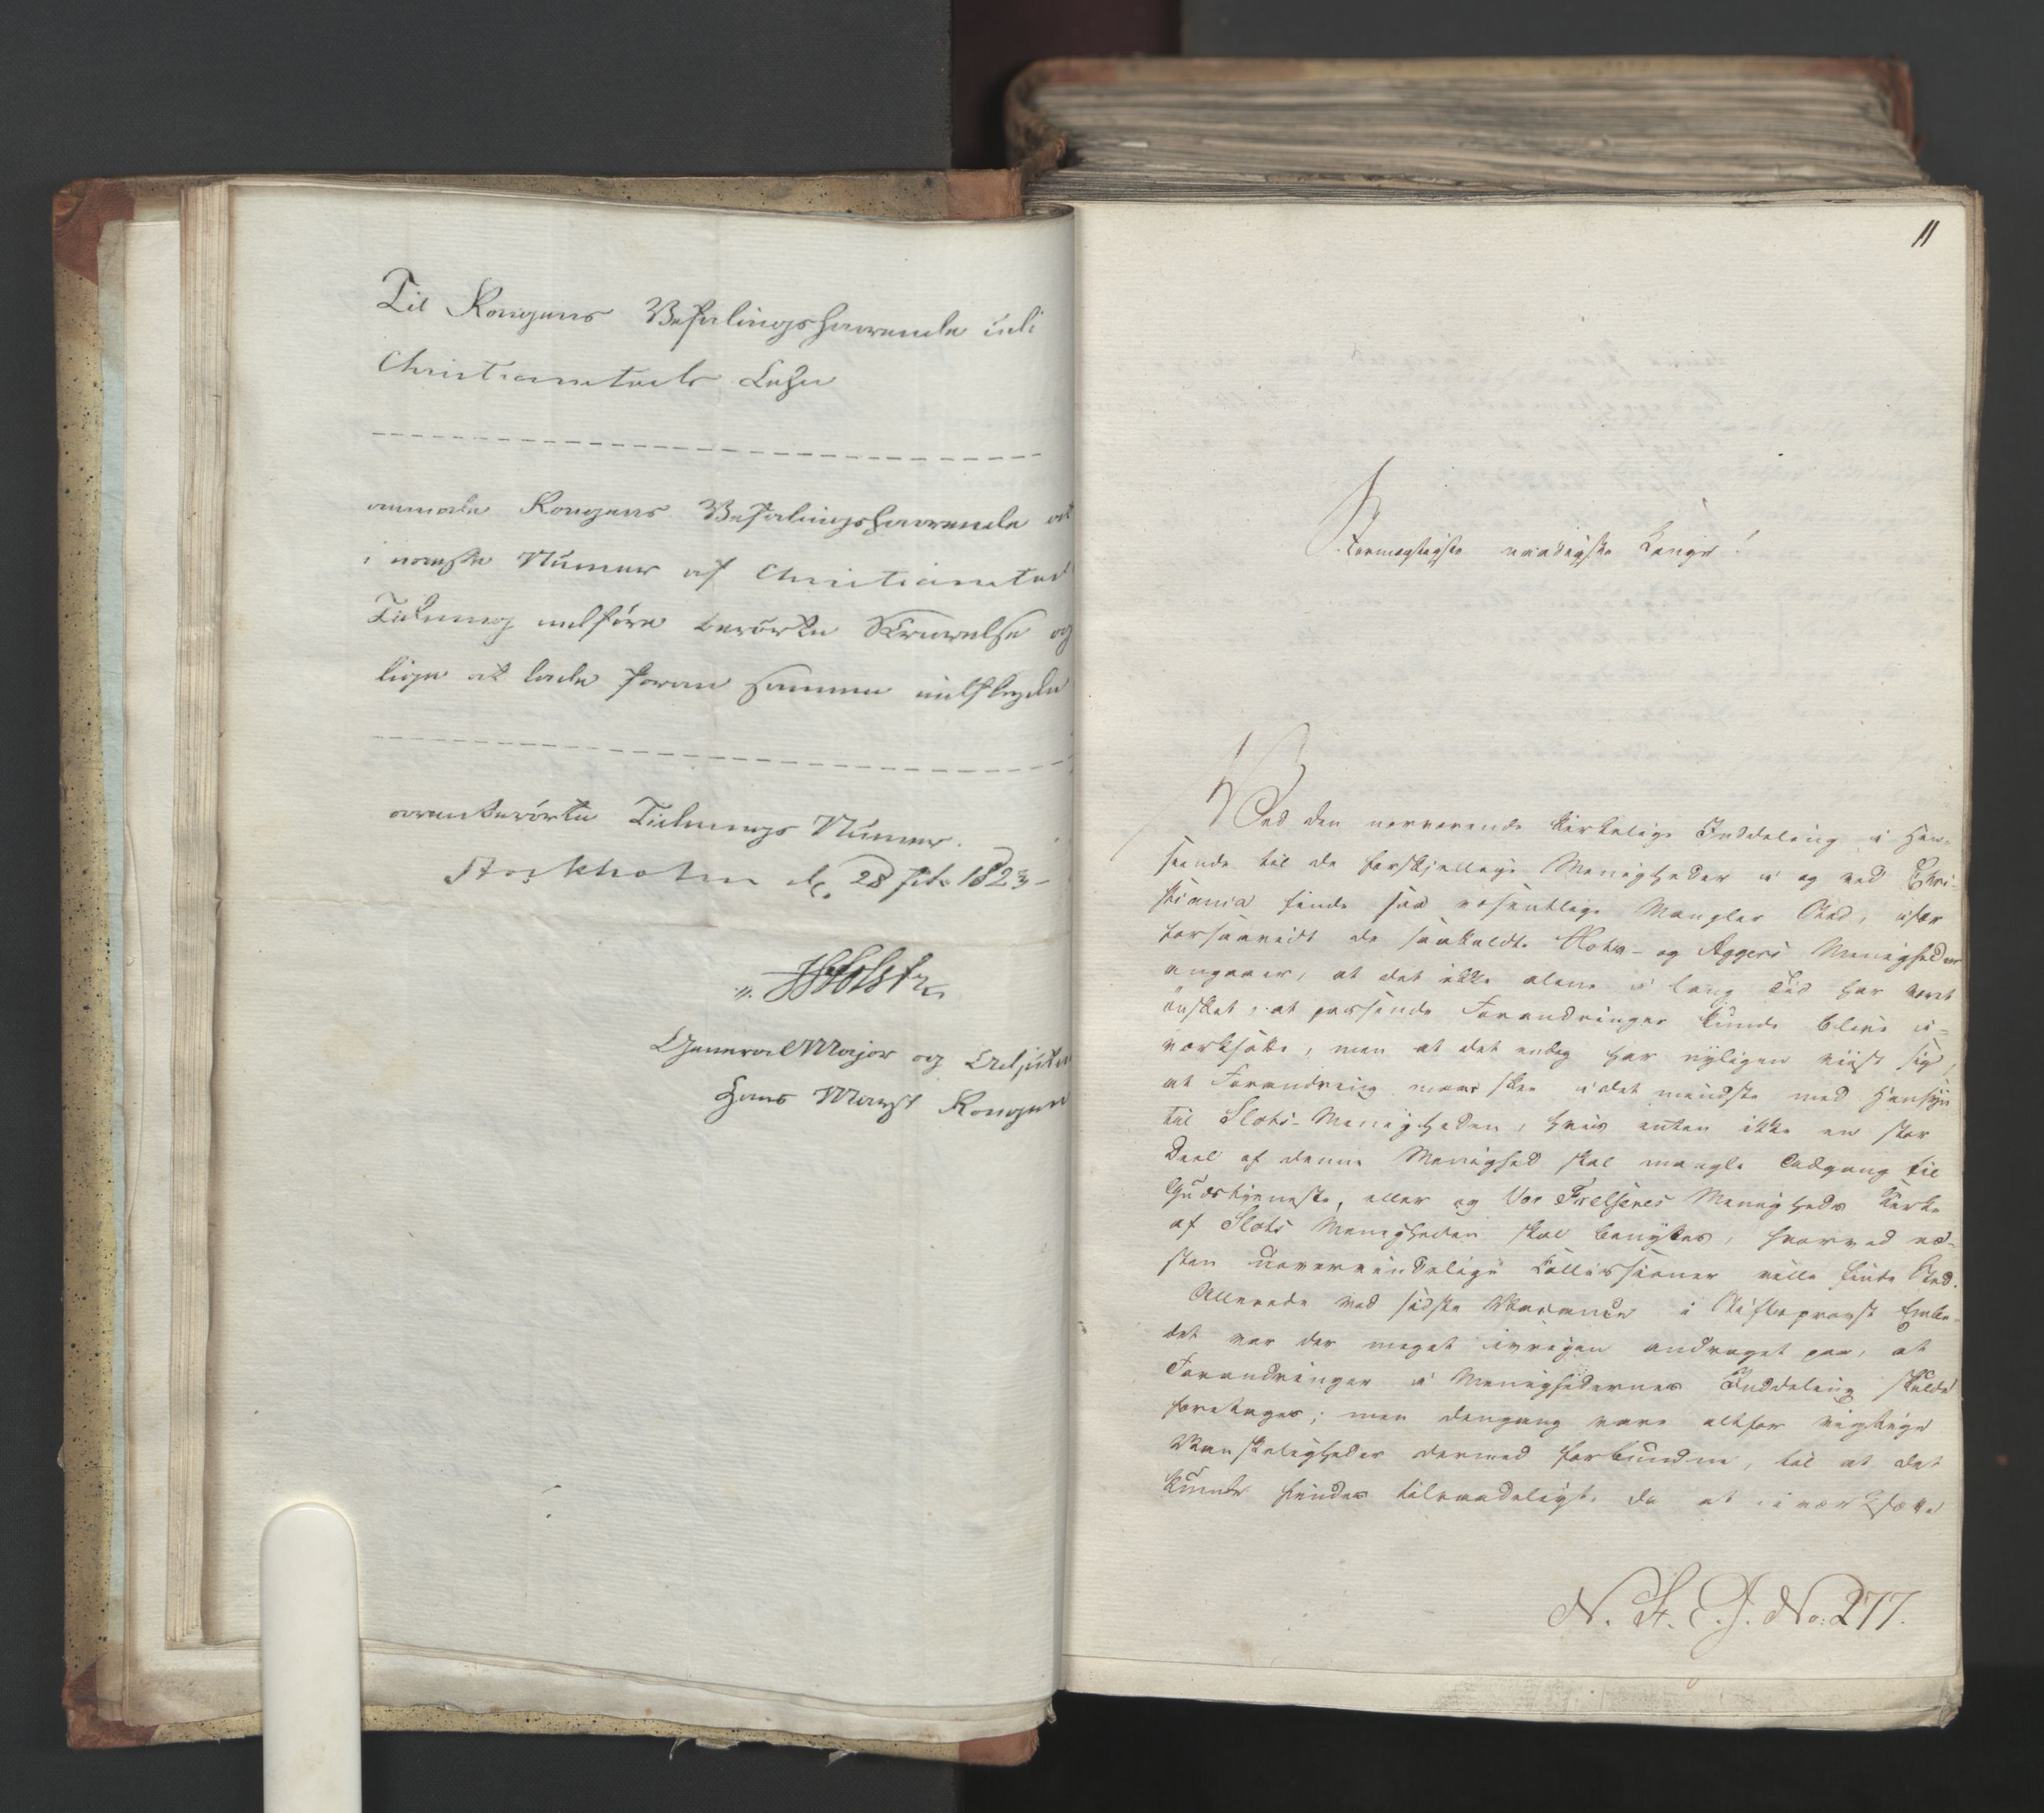 Til Kongens Befalingshavende udi
Christianstads Lehn
anmode Kongens Befalingshavende at
i næste Numer af Christianstad
Tidning indføre berørte Skrivelse og
lige at lade foran samme indflyde
ovenberørte Tidnings Numer.
Stockholm d. 28 feb. 1823
Holst
General Major og Adjutan
Hans Mayst Kongen
11
Stormægtigste naadigste Konge!
Ved den nærværende kirkelige Inddeling i Hen-
seende til de forskjellige Menigheder i og ved Chri-
stiania finde saa væsentlige Mangler Sted, især
forsaavidt de saakaldte Slots- og Aggers Menigheder
angaaer, at det ikke alene i lang Tid har været
ønsket, at passende Forandringer kunde blive i-
værksatte, men at det endog har nyligen viist sig,
at Forandring maae skee i det mindste med Hensyn
til Slots-Menigheden, hvis enten ikke en stor
Deel af denne Menighed skal mangle Adgang til
Gudstjeneste, eller og Vor Frelseres Menigheds Kirke
af Slots Menigheden skal benyttes, hvorved næ-
sten uovervindelige Collissioner ville finde Sted.
Allerede ved sidste Vacance i Stiftsprovst Embe-
det var der meget ivrigen andraget paa, at
Forandringer i Menighedernes Inddeling skulde
foretages; men dengang vare altfor vigtige
Vanskeligheder dermed forbundne, til at det
kunde findes tilraadeligt da at iværksætte
N. F. J. No: 277.